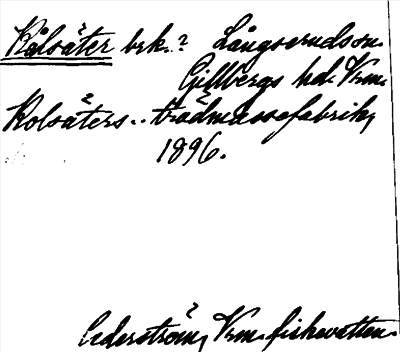 Kålsäter brk.? Långserudssn.
Gillbergs hd. Vrm.
Kolsäters.. trädmassefabrik,
1896.
Cederström, Vrm. fiskevatten.